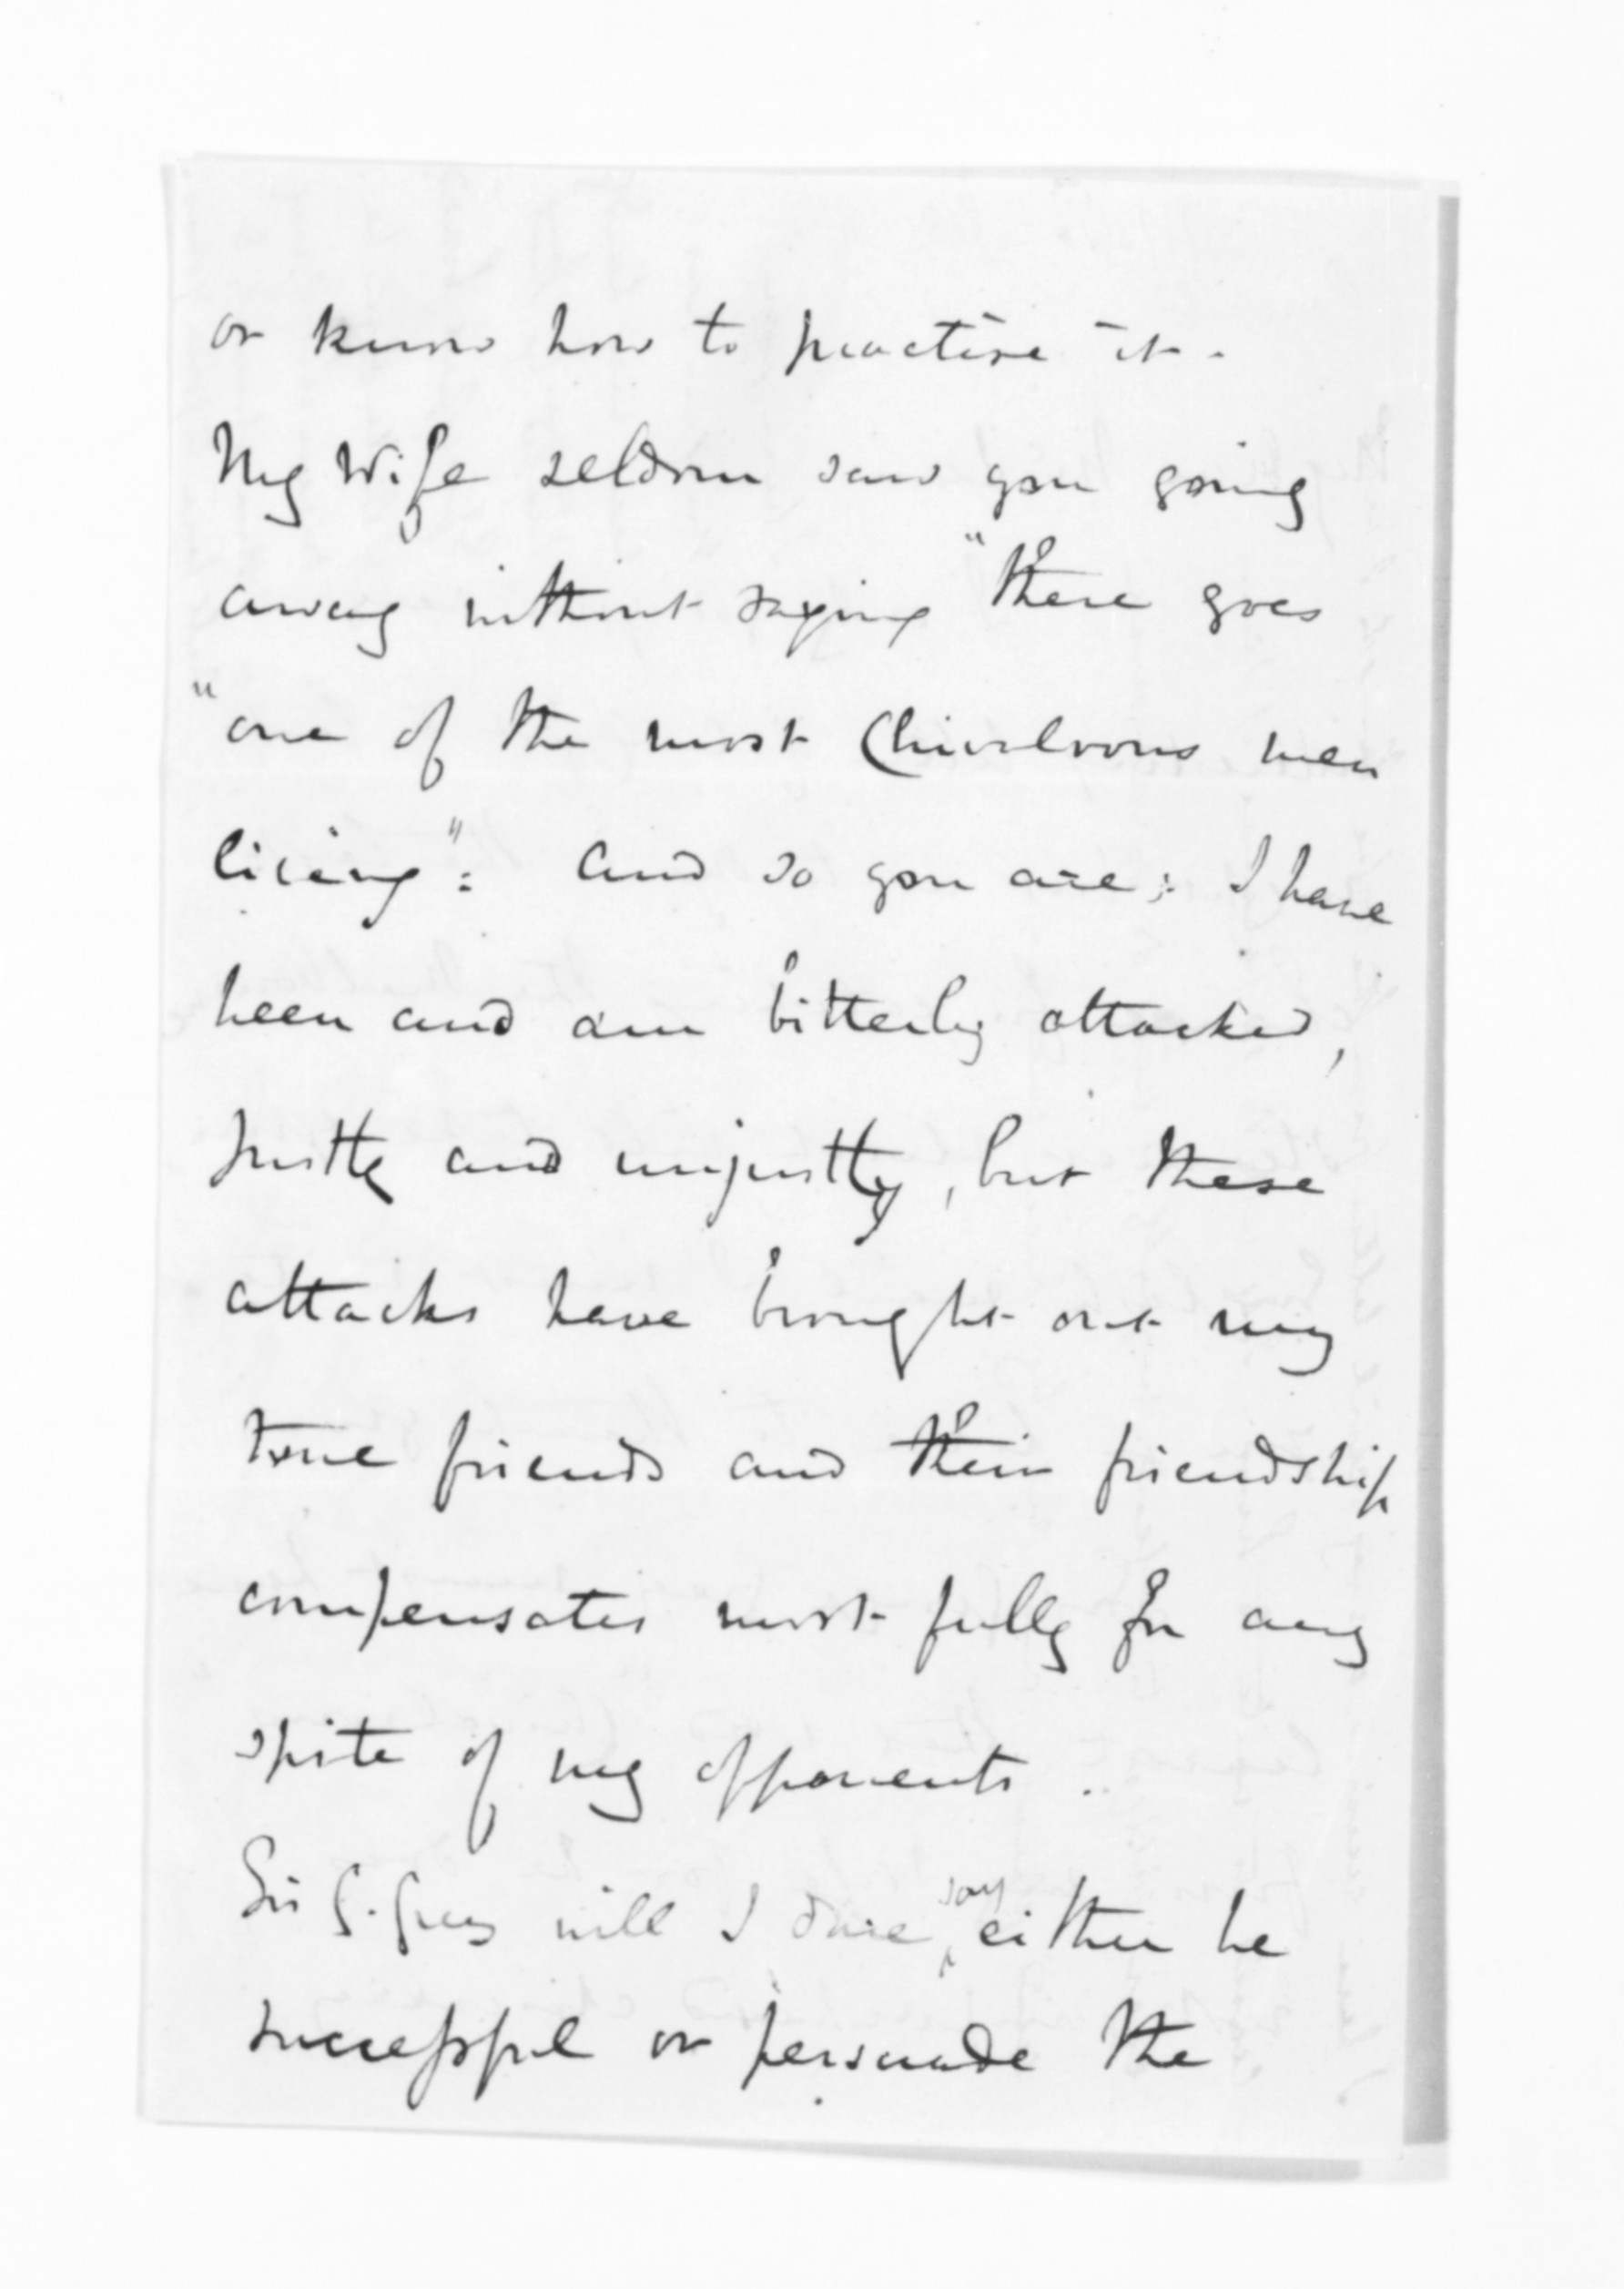 or know how to practise it.
My Wife seldom saw you going
away without saying "there goes
"one of the most Chivalrous men
living": And so you are: I have
been and am bitterly attacked,
justly and unjustly, but these
attacks have brought out my
true friends and their friendship
compensates most fully for any
spite of my opponents.
Sir G. Grey will I dare say either be
successful or persuade the